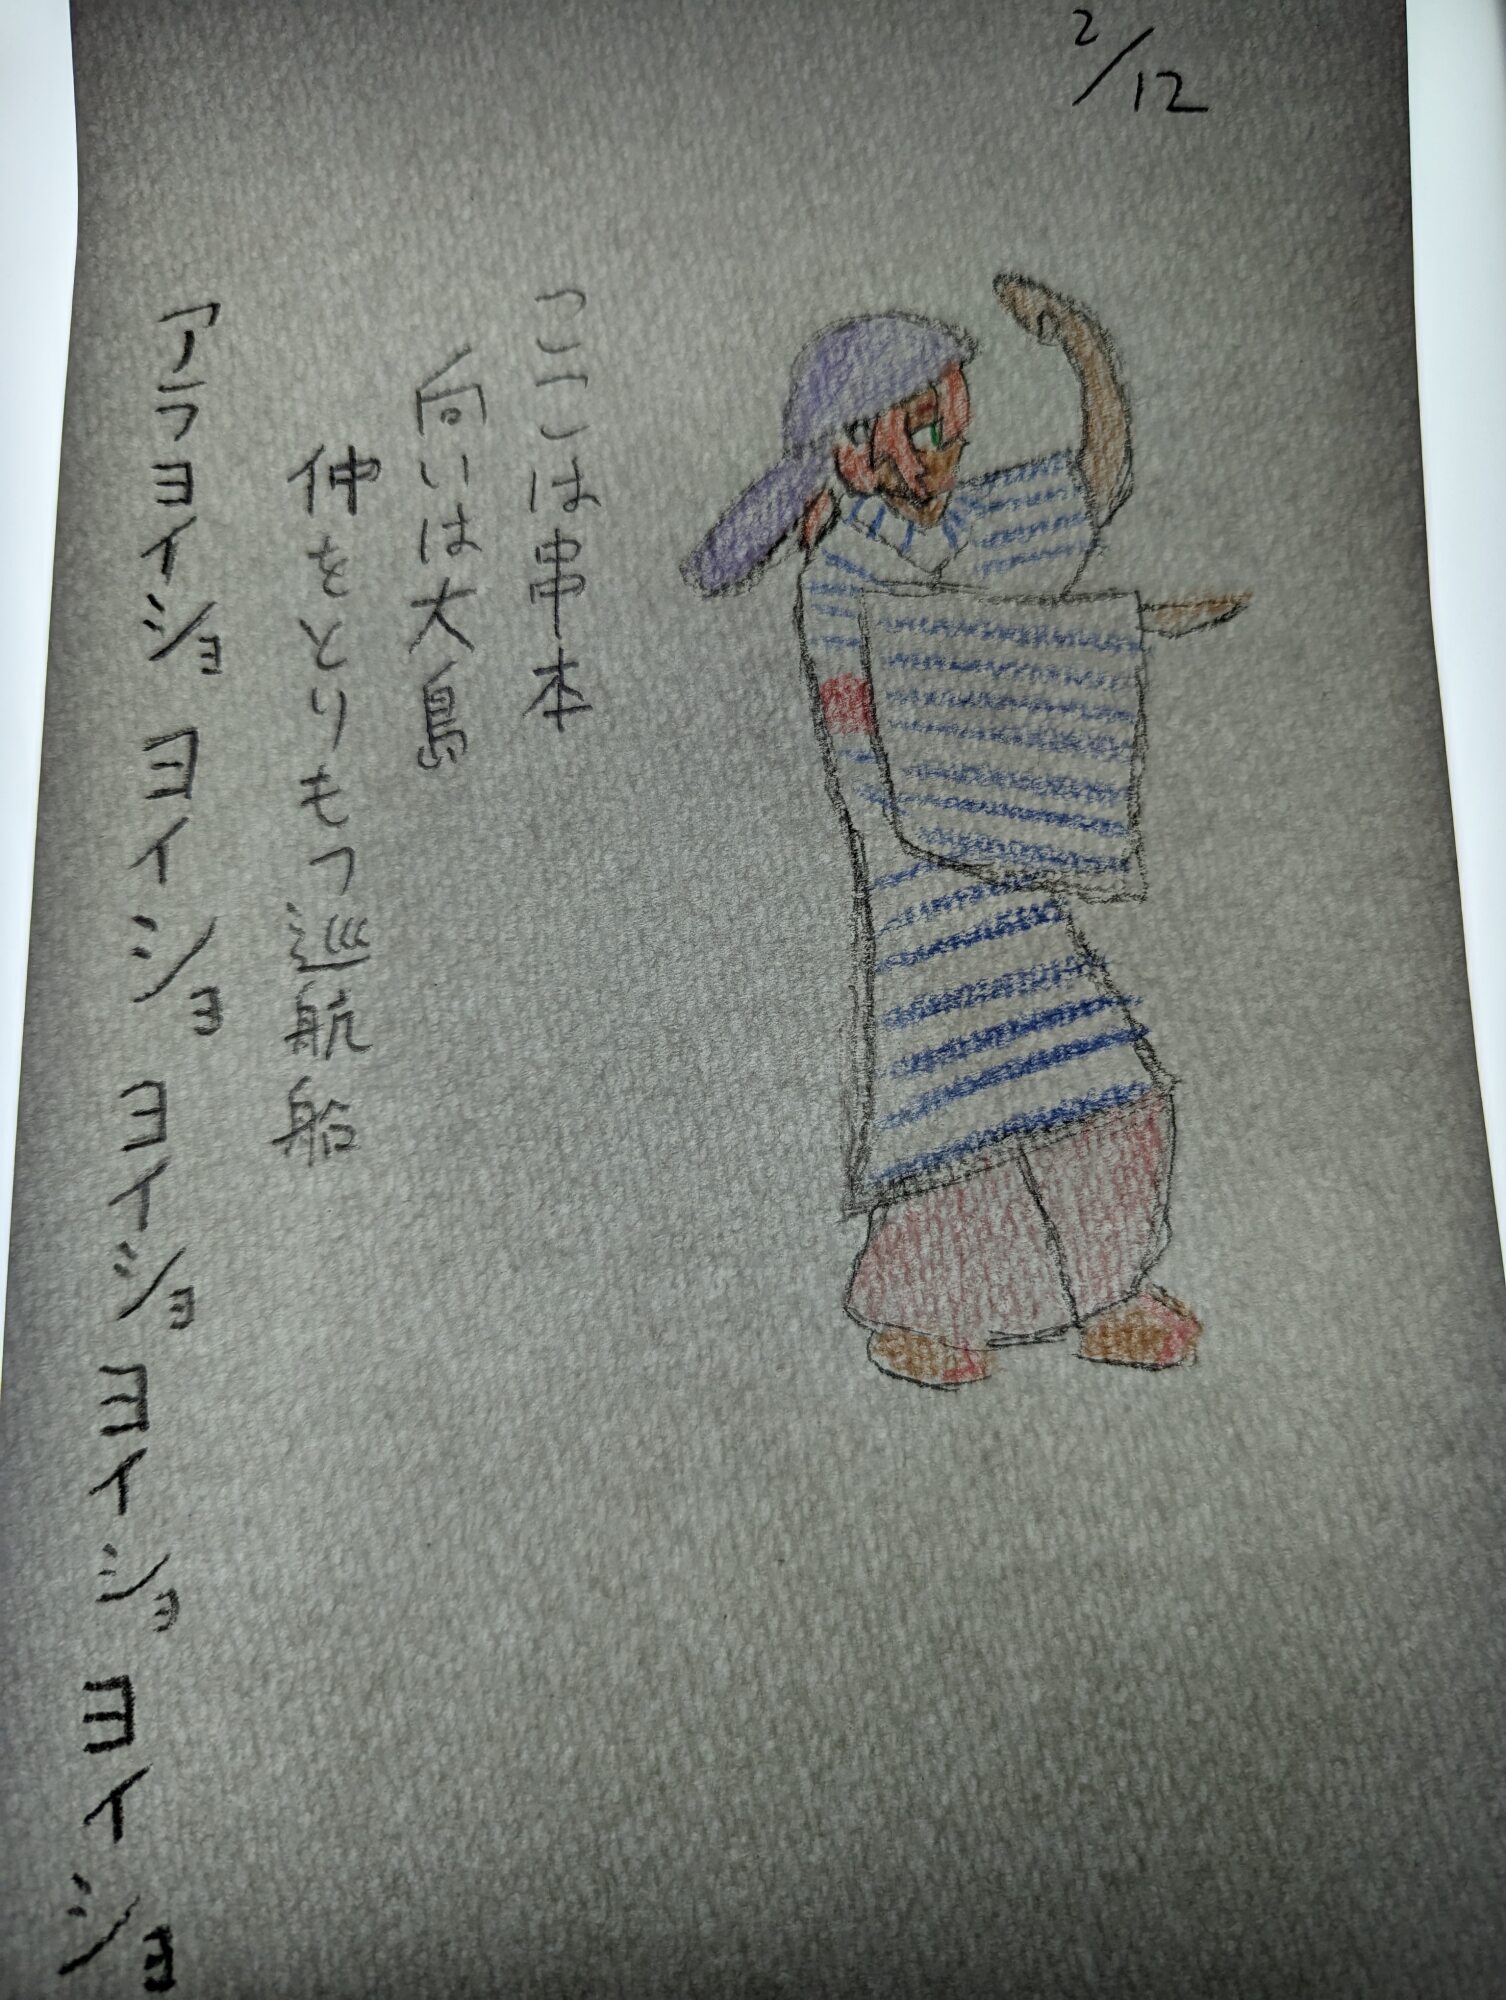 2/12
ここは串本
向いは大島
仲をとりもつ巡航船
アラヨイショ ヨイショ ヨイショ ヨイショ ヨイショ